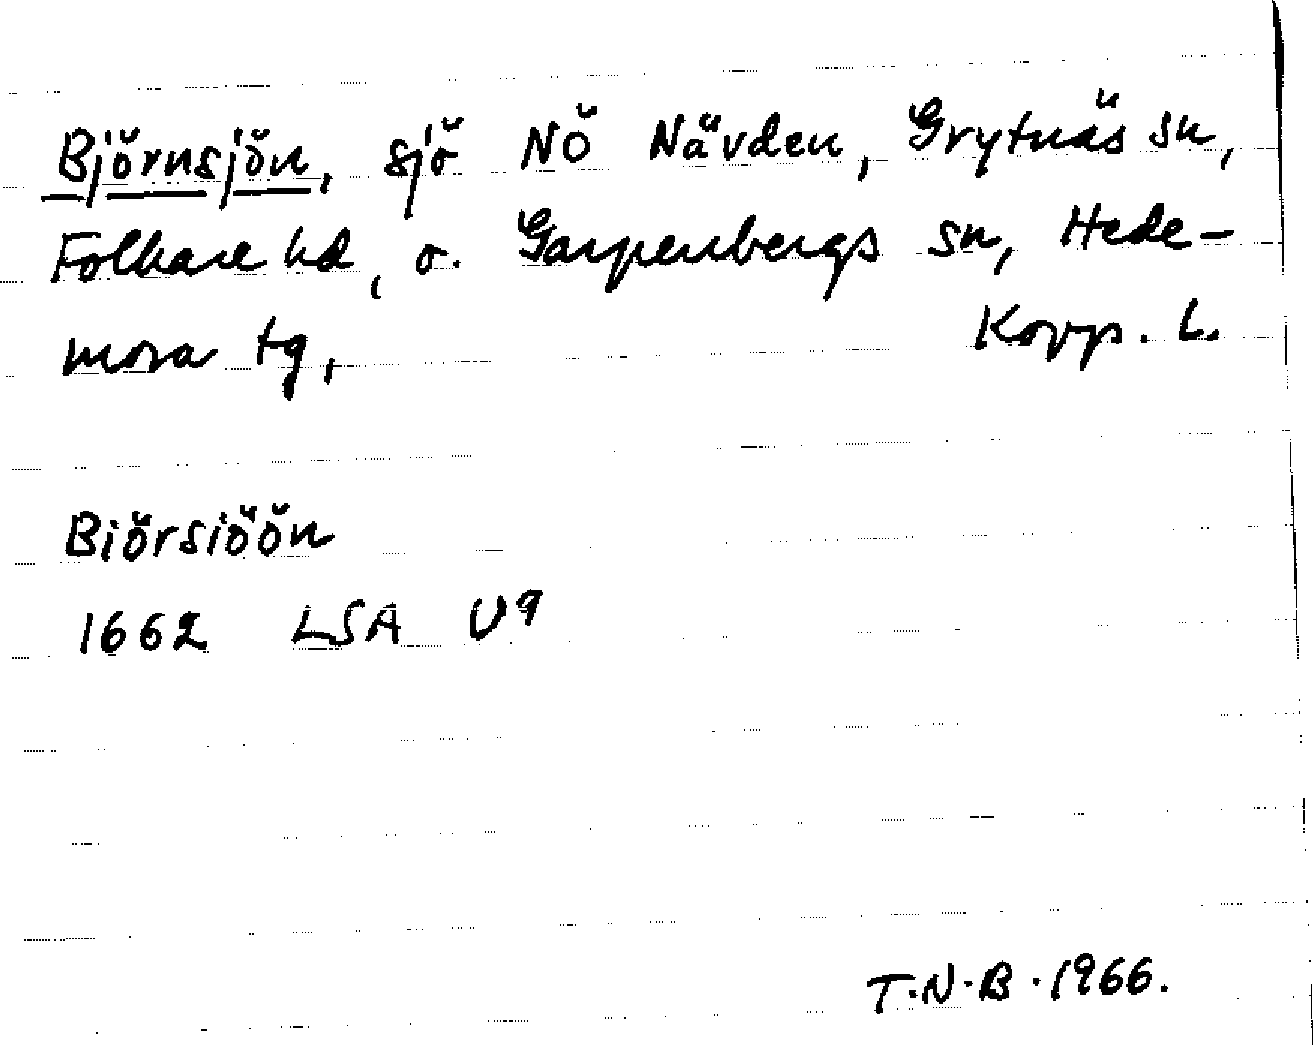 Björnsjön, sjö NÖ Nävden, Grytnäs sn,
Folkare hd, o. Garpenbergs sn, Hede-
mora tg, Kopp. L.
Biörsiöön
1662 LSA U9
T.N.B. 1966.